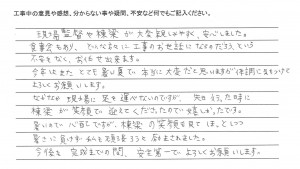 工事中の意見や感想、分からない事や疑問、不安など何でもご記入ください。
現場監督や棟梁が大変親しみやすく、安心しました。
食事会もあり、どんな方々に工事のお世話になるのだろうという
不安もなく、お任せ出来ます。
今年はまた とても暑い夏で 本当に大変だと思いますが体調に気をつけて
よろしくお願いします。
なかなか 現場に足を運べないのですが、先日 行った時に
棟梁が笑顔で 迎えてくださったので嬉しかったです。
暑いので心配ですが、棟梁の笑顔を見て ほっとしつつ
暑さに負けず 私も頑張ろうと思えました。
今後も 完成までの間、安全第一で よろしくお願いします。